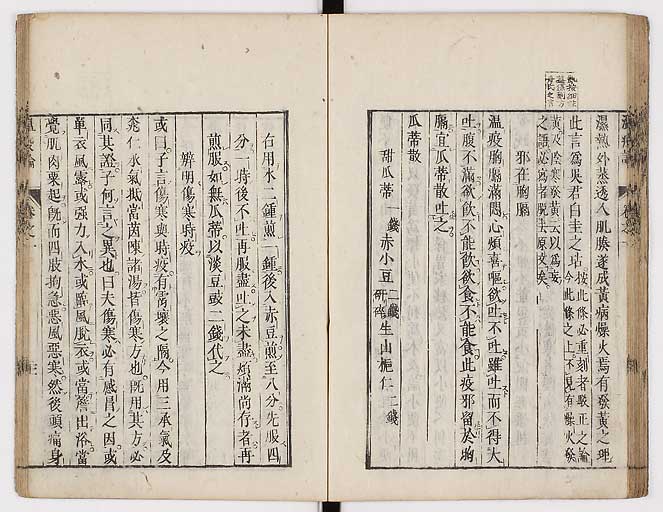 濕熱外蒸透入肌腠遂成黃病燥火焉有發黃之理
此言為吳君自圭之玷
按此條必重刻者駁正之論
今此條之上不見有燥火發
黃及陰寒發黃云以為妄
之語必寫者脫去原文矣
邪在胸膈
溫疫胸膈滿悶心煩喜嘔欲吐不吐雖吐而不得大
吐腹不滿欲飲不能飲欲食不能食此疫邪留於胸
膈宜瓜蒂散吐之
瓜蒂散
甜瓜蒂一錢赤小豆二錢研碎生山梔仁二錢
右用水二鍾煎一鍾後入赤豆煎至八分先服四
分一時後不吐再服盡吐之未盡煩滿尚存者再
煎服如無瓜蒂以淡豆豉二錢代之
辨明傷寒時疫
或曰子言傷寒與時疫有霄壤之隔今用三承氣及
桃仁承氣抵當茵陳諸湯皆傷寒方也既用其方必
同其證子何言之異也曰夫傷寒必有感冒之因或
單衣風露或强力入水或臨風脫衣或當簷出浴當
覺肌肉粟起既而四肢拘急惡風惡寒然後頭痛身